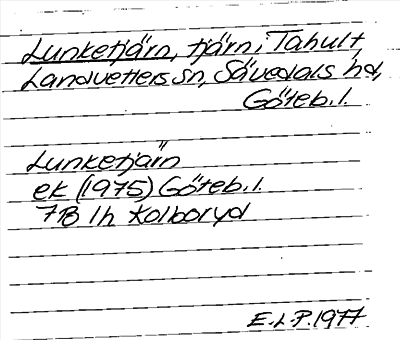 Lunketjärn, tjärn i Tahult,
Landvetters sn, Sävedals hd,
Göteb. l.
Lunketjärn
ek (1975) Göteb. l.
7B 1h Kolboryd
E.L.P. 1977